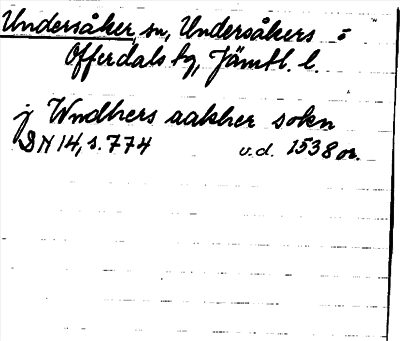 Undersåker, sn, Undersåkers o
Offerdals tg, Jämtl. l.
j Wndhers aakher sokn
DN 14, s. 774 u.d. 1538 or.